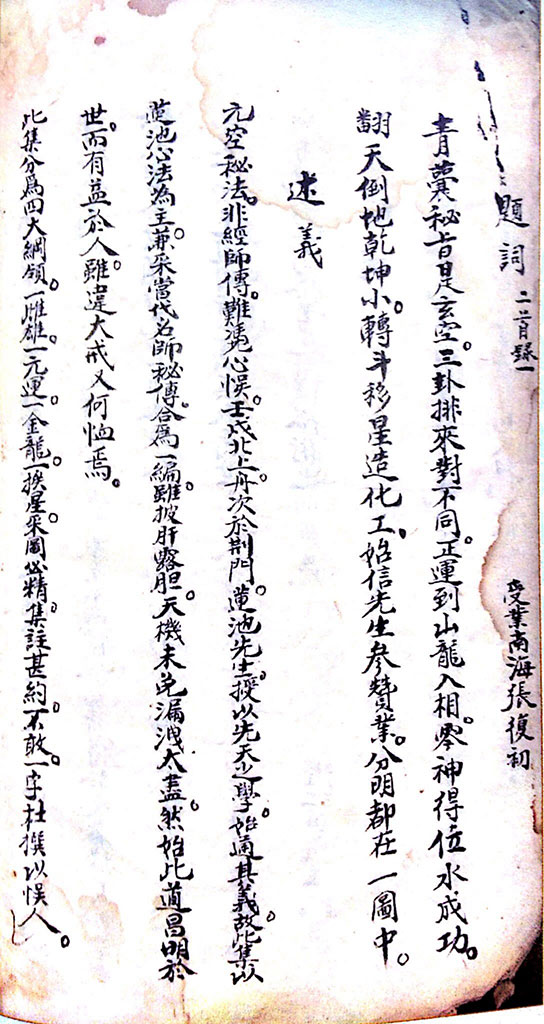 題詞 二首錄一 受業南海張復初
青囊秘旨是玄空。三卦排來對不同。正運到山龍入相。零神得位水成功。
翻天倒地乾坤小。轉斗移星造化工。始信先生參贊業。分明都在一圖中。
述義
元空秘法。非經師傳。難憑心悮。壬戌北上。舟次於荆門。蓮池先生。授以先天之學。始通其義。故此集以
蓮池心法為主。兼采當代名師秘傳。合爲一編。雖披肝露胆。天機未免漏洩太盡。然始此道昌明於
世。而有益於人。雖違大戒。又何恤焉。
此集分爲四大綱領。一雌雄。一元運。一金龍。一挨星。采圖必精。集註甚約。不敢一字杜撰以悮人。